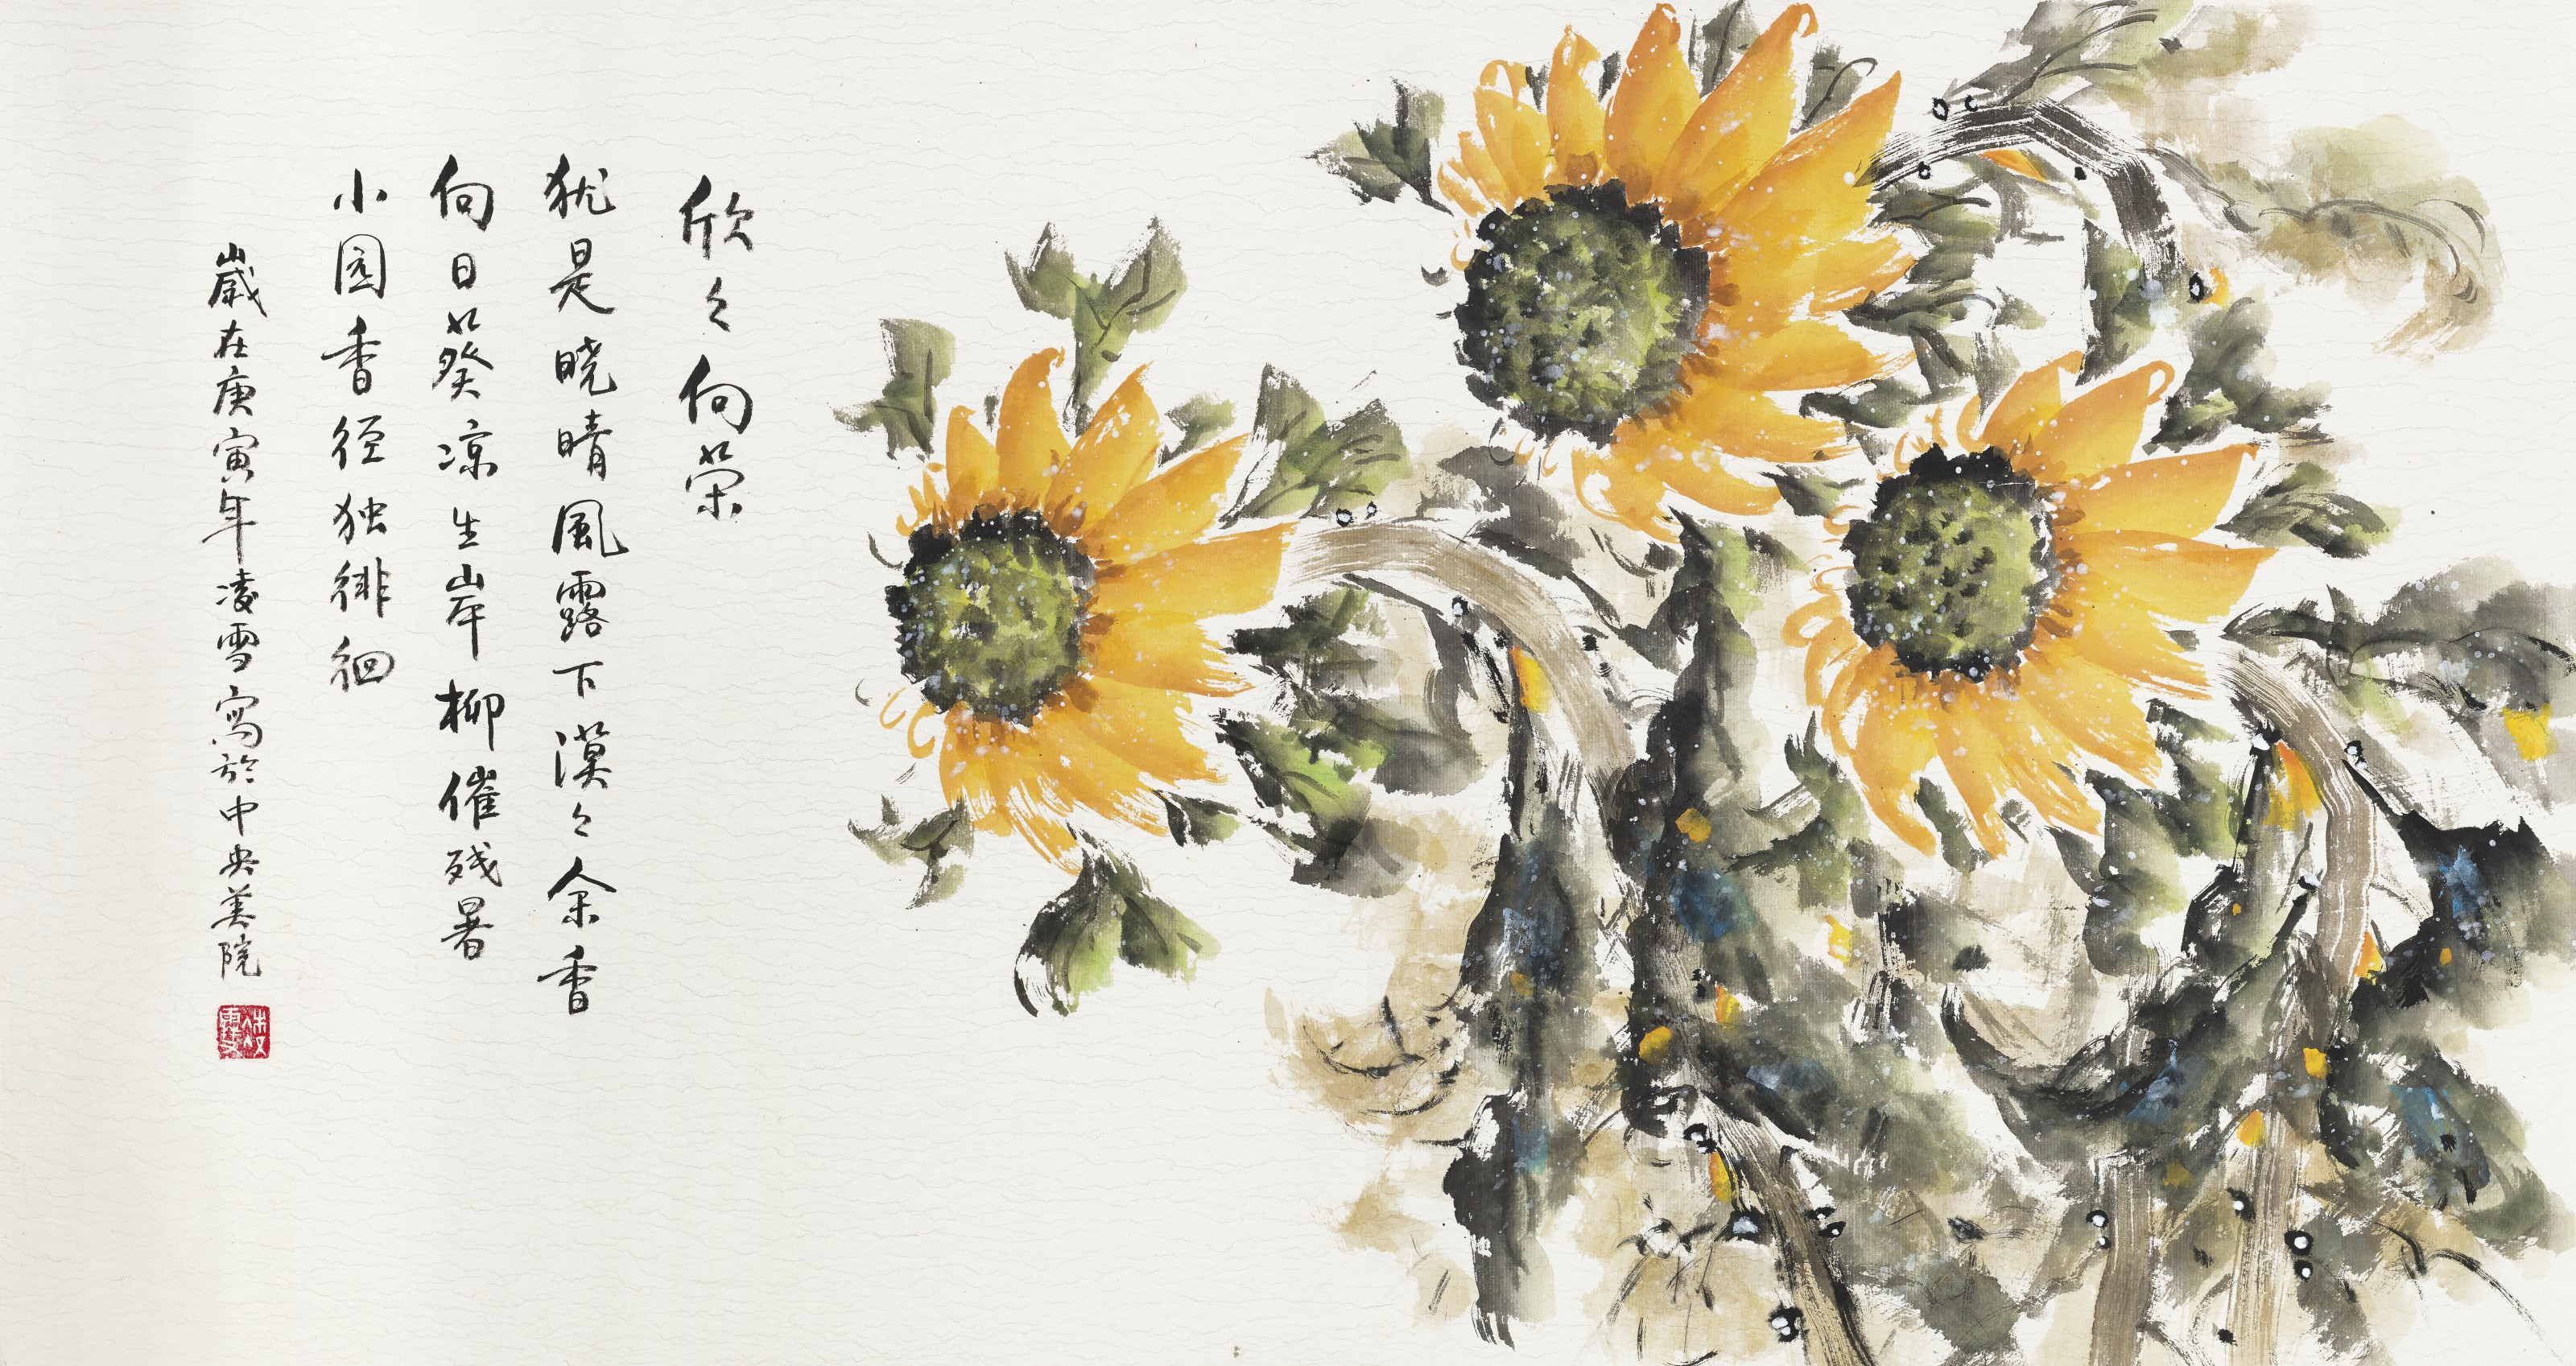 欣々向荣
犹是晓晴風露下漠々余香
向日葵凉生岸柳催残暑
小园香径独徘徊
歲在庚寅年凌雪寫於中央美院